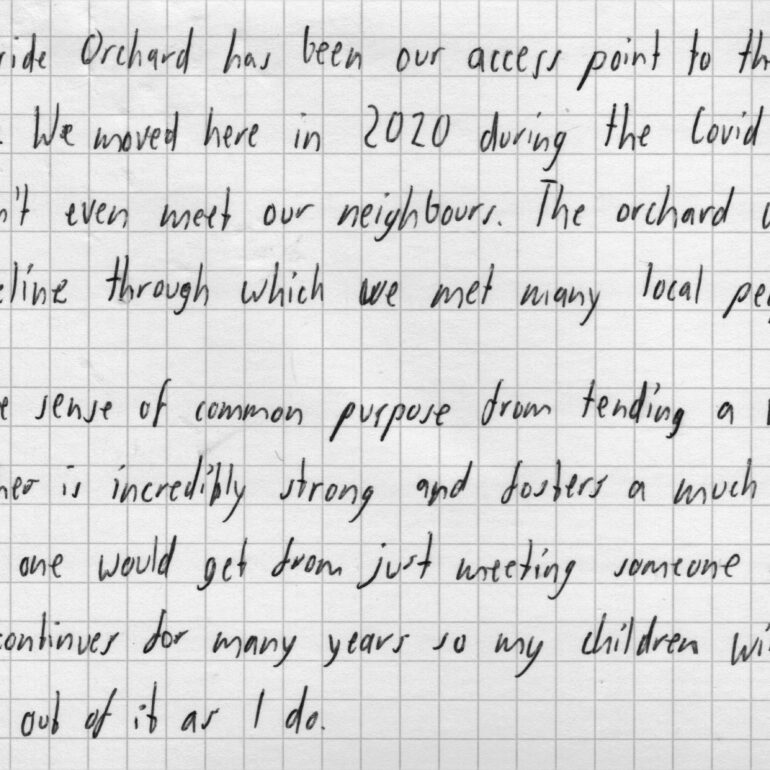 ride Orchard has been our access point to th
. We moved here in 2020 during the Covid
n't even meet our neighbours. The orchard
eline through which we met many local peo
e sense of common purpose from tending a
her is incredibly strong and fosters a much
one would get from just meeting someone
continues for many years so my children wi
out of it as I do.